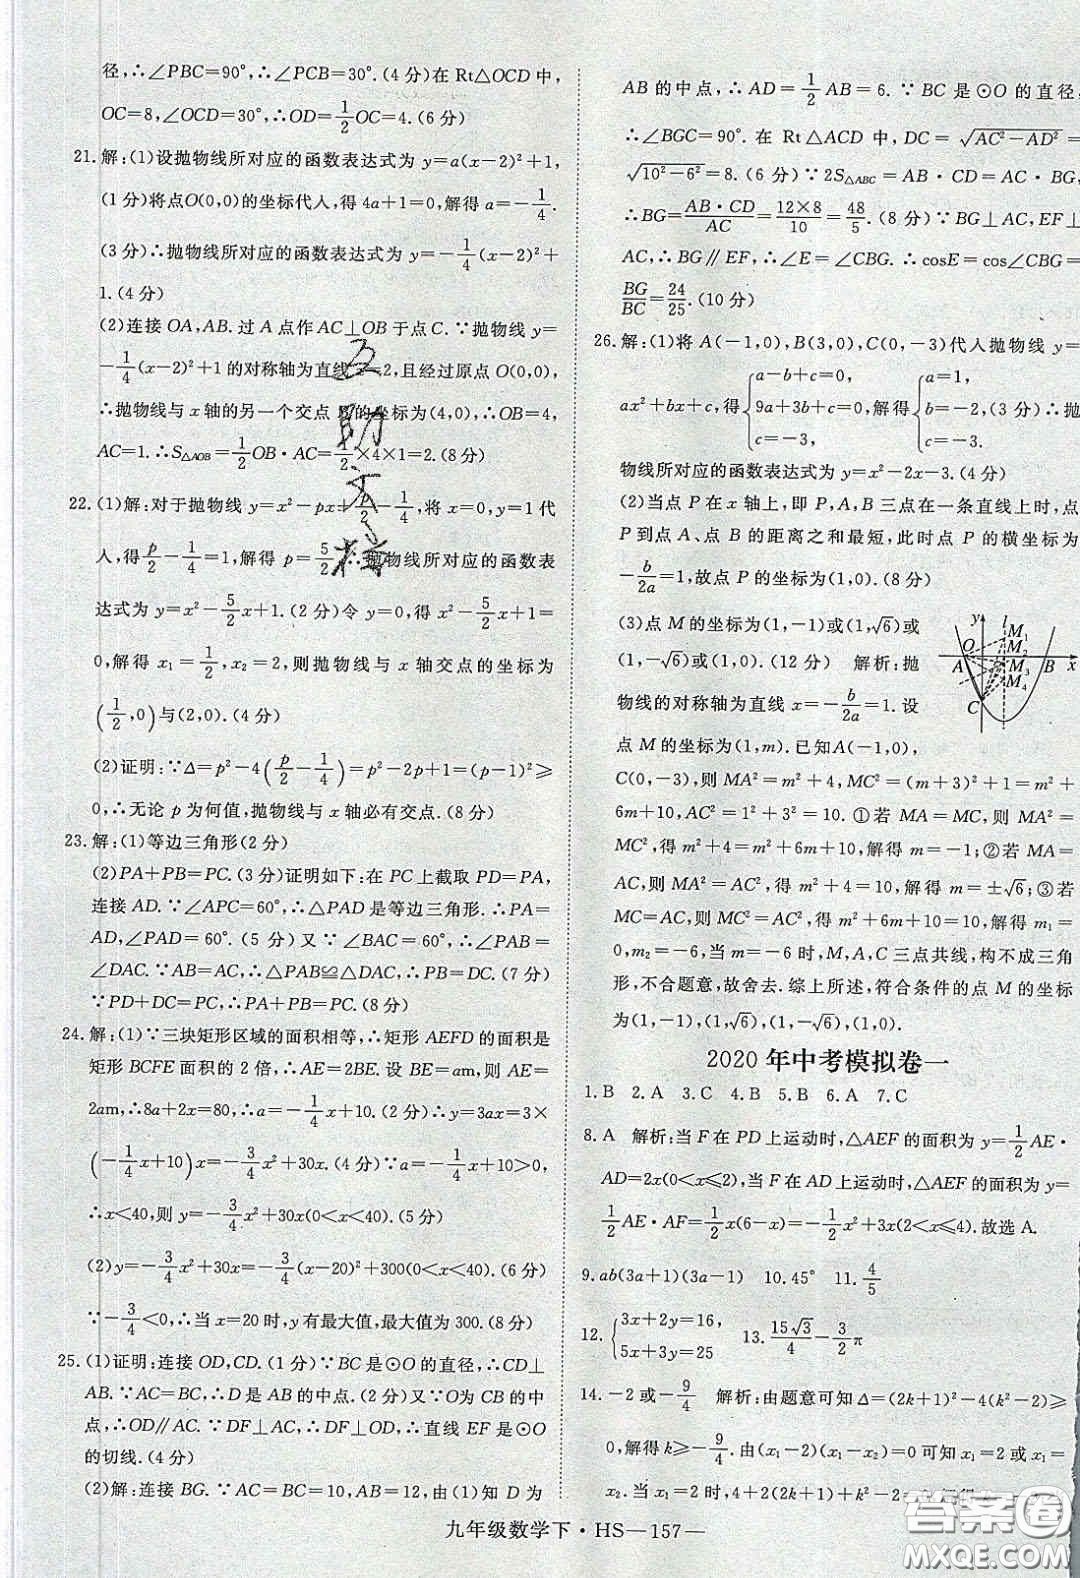 径,∴∠PBC=90°,∴∠PCB=30°.(4分)在 Rt△OCD 中,
OC=8,∠OCD=30°,∴OD=1/2OC=4.(6分)
21.解:(1)设抛物线所对应的函数表达式为 y=a(x-2)²+1,
(1分)将点O(0,0)的坐标代入,得4a+1=0,解得a=-1/4.
(3分)∴抛物线所对应的函数表达式为 y=-1/4(x-2)²+
1.(4分)
(2)连接OA,AB.过A点作AC⊥OB于点C.∵抛物线y=
-1/4(x-2)²+1的对称轴为直线 =2,且经过原点O(0,0),
∴抛物线与 x 轴的另一个交点 的坐标为(4,0),∴OB=4,
AC=1.∴S△AOB=1/2OB·AC=1/2×4×1=2.(8分)
22.(1)解:对于抛物线y=x²-px+p/2-1/4,将x=0,y=1代
入,得p/2-1/4=1,解得 p=5/2 ∴抛物线所对应的函数表
达式为 y=x²-5/2x+1.(2分)令 y=0,得 x²-5/2x+1=
0,解得 x₁=1/2,x₂=2,则抛物线与 x 轴交点的坐标为
(1/2,0)与(2,0).(4分)
(2)证明:∵Δ=p²-4(p/2-1/4)=p²-2p+1=(p-1)²≥
0,∴无论 p 为何值,抛物线与 x 轴必有交点.(8分)
23.解:(1)等边三角形(2分)
(2)PA+PB=PC.(3分)证明如下:在PC上截取PD=PA,
连接 AD.∵∠APC=60°,∴△PAD是等边三角形.∴PA=
AD,∠PAD=60°.(5分)又∵∠BAC=60°,∴∠PAB=
∠DAC.∵AB=AC,∴△PAB≌△DAC,∴PB=DC.(7分)
∵PD+DC=PC,∴PA+PB=PC.(8分)
24.解:(1)∵三块矩形区域的面积相等,∴矩形 AEFD 的面积是
矩形 BCFE 面积的 2 倍,∴AE=2BE.设 BE=am,则AE=
2am,∴8a+2x=80,∴a=-1/4x+10,(3分)∴y=3ax=3×
(-1/4x+10)x=-3/4x²+30x.(4分)∵a=-1/4x+10>0,
∴x<40,则y=-3/4x²+30x(0<x<40).(5分)
(2)y=-3/4x²+30x=-3/4(x-20)²+300(0<x<40).(6分)
∵-3/4<0,∴当x=20时,y有最大值,最大值为300.(8分)
25.(1)证明:连接OD,CD.(1分)∵BC是⊙O的直径,∴CD⊥
AB.∵AC=BC,∴D是AB的中点.(2分)又∵O为CB的中
点,∴OD∥AC.∵DF⊥AC,∴DF⊥OD,∴直线 EF 是⊙O
的切线.(4分)
(2)解:连接 BG.∵AC=BC=10,AB=12,由(1)知 D 为
AB的中点,∴AD=1/2AB=6.∵BC是⊙O的直径,
∴∠BGC=90°.在 Rt△ACD 中,DC=√(AC²-AD²)=
√(10²-6²)=8.(6分)∵2S△ABC=AB·CD=AC·BG,
∴BG=AB·CD/AC=12×8/10=48/5.(8分)∵BG⊥AC,EF⊥
AC,∴BG∥EF,∴∠E=∠CBG.∴cosE=cos∠CBG=
BG/BC=24/25.(10分)
26.解:(1)将A(-1,0),B(3,0),C(0,-3)代入抛物线y=
ax²+bx+c,得{a-b+c=0, 9a+3b+c=0,解得{a=1, b=-2,(3分)∴抛
c=-3, c=-3.
物线所对应的函数表达式为y=x²-2x-3.(4分)
(2)当点 P 在 x 轴上,即 P,A,B 三点在一条直线上时,点
P到点A、点B的距离之和最短,此时点P的横坐标为
-b/2a=1,故点 P 的坐标为(1,0).(8分)
(3)点M的坐标为(1,-1)或(1,√6)或
(1,-√6)或(1,0).(12分) 解析:抛
物线的对称轴为直线x=-b/2a=1.设
点 M 的坐标为(1,m).已知A(-1,0),
y l M₁ M₂ O A M₃ B x M₄ C
C(0,-3),则 MA²=m²+4,MC²=(m+3)²+1=m²+
6m+10,AC²=1²+3²=10.①若 MA=MC,则MA²=
MC²,得 m²+4=m²+6m+10,解得 m=-1;②若 MA=
AC,则MA²=AC²,得 m²+4=10,解得 m=±√6;③若
MC=AC,则MC²=AC²,得m²+6m+10=10,解得m₁=
0,m₂=-6,当m=-6时,M,A,C三点共线,构不成三角
形,不合题意,故舍去.综上所述,符合条件的点M的坐标
为(1,-1),(1,√6),(1,-√6),(1,0).
2020年中考模拟卷一
1.B 2.A 3.C 4.B 5.B 6.A 7.C
8.A 解析:当F在PD上运动时,△AEF的面积为y=1/2AE·
AD=2x(0<x≤2),当F在AD上运动时,△AEF的面积为y=
1/2AE·AF=1/2x(6-x)=-1/2x²+3x(2<x≤4).故选A.
9.ab(3a+1)(3a-1) 10.45° 11.4/5
12.{3x+2y=16, 5x+3y=25 13.15√3/4-3/2π
14.-2或-9/4 解析:由题意可知Δ=(2k+1)²-4(k²-2)≥
0,解得k≥-9/4.由(x₁-2)(x₁-x₂)=0可知x₁=2或x₁=
九年级数学下·HS—157—
答案圈
MXQE.COM